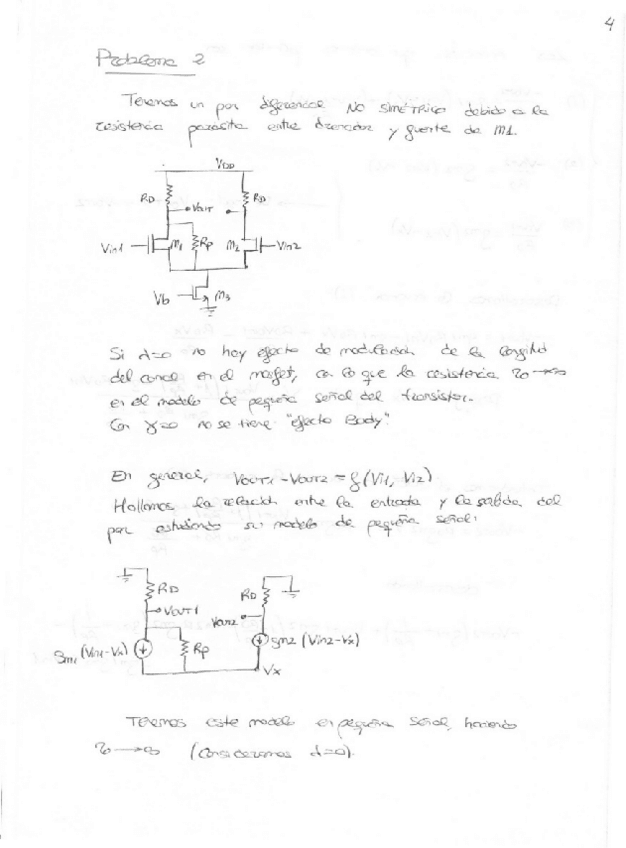 4
Problema 2
Tenemos un par diferencial NO SIMÉTRICO debido a la
resistencia parásita entre drenador y fuente de M1.
VDD
RD
RD
VOUT
Vin1
M1
Rp
M2
Vin2
Vb
M3
Si λ=0 no hay efecto de modulación de la longitud
del canal en el mosfet, con lo que la resistencia ro→∞
en el modelo de pequeña señal del transistor.
Con γ=0 no se tiene "efecto Body".
En general, VOUT1 - VOUT2 = f(Vi1, Vi2)
Hallamos la relación entre la entrada y la salida del
par estudiando su modelo de pequeña señal:
RD
RD
VOUT1
VOUT2
gm1 (Vin1-Vx)
Rp
gm2 (Vin2-Vx)
Vx
Tenemos este modelo en pequeña señal, haciendo
ro→∞ (Consideramos λ=0).